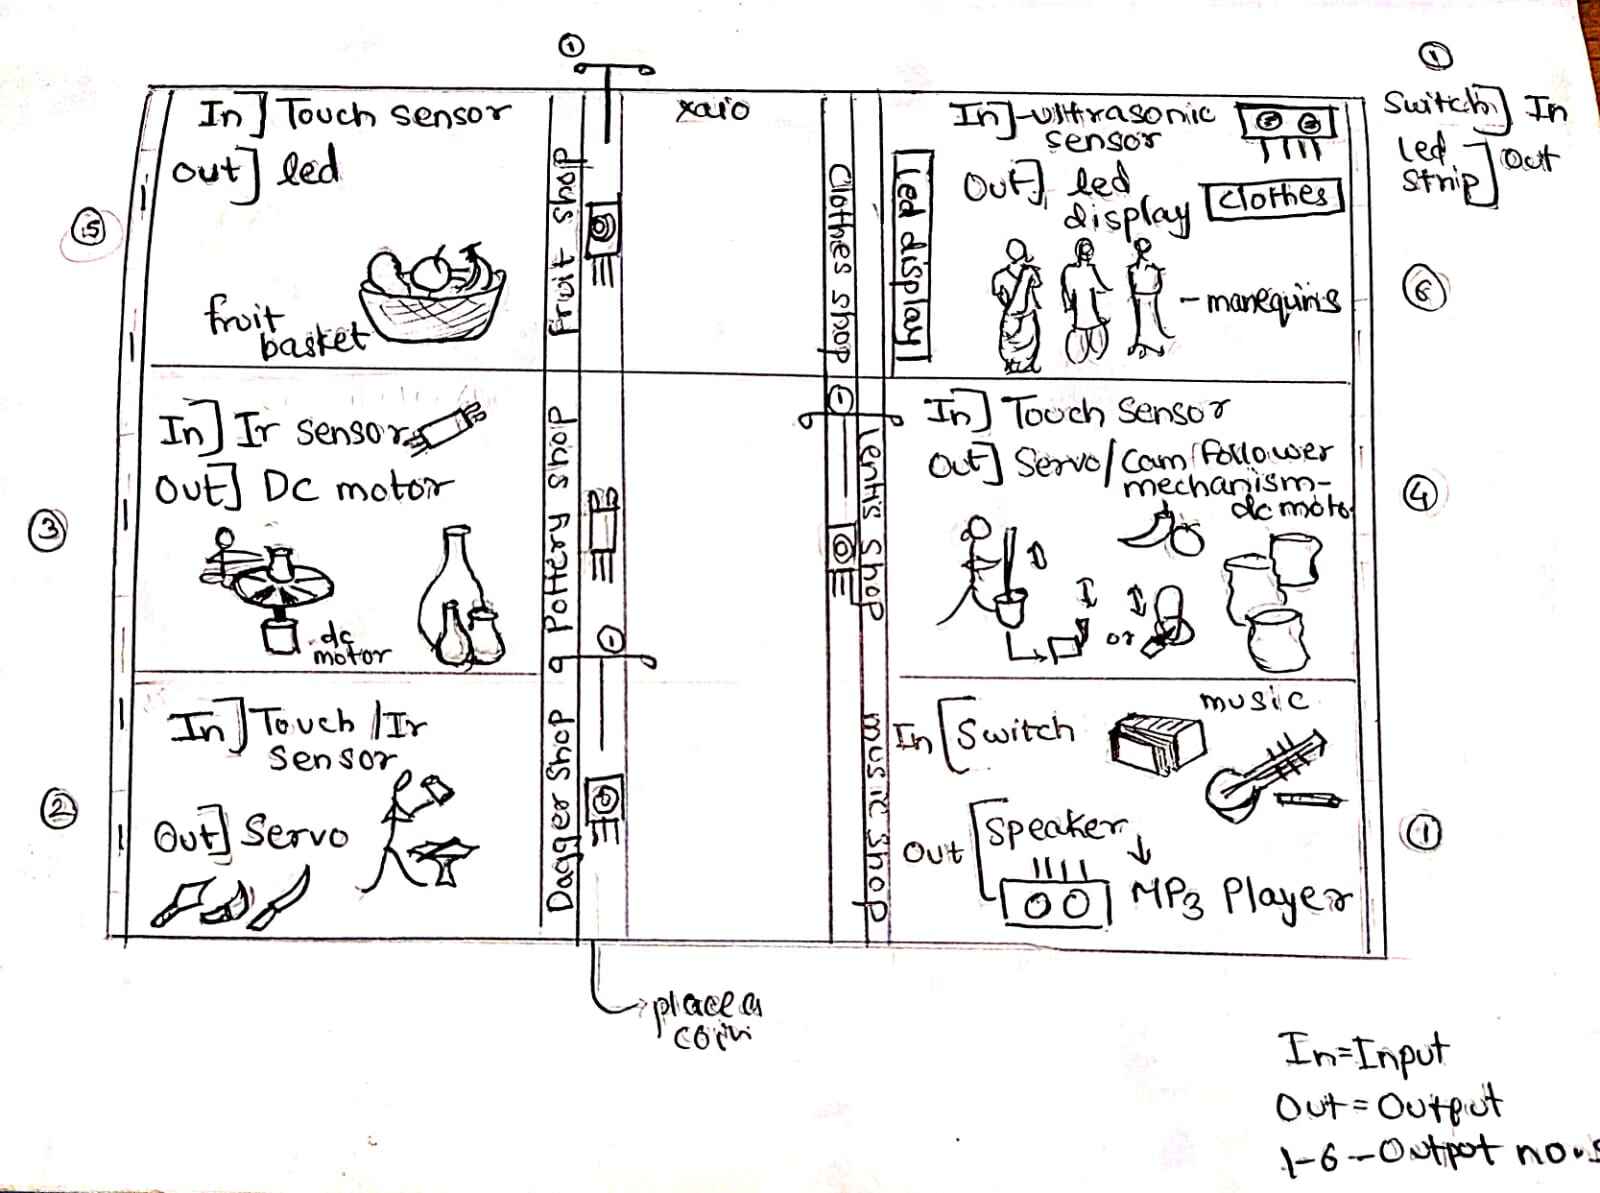 ①
①
Switch] In
Led Strip] Out
In] Touch sensor
Out] led
⑤
fruit
basket
Fruit shop
xaio
Clothes shop
Led display
In]-ultrasonic
sensor
Out] led
display
Clothes
- manequins
⑥
In] Ir sensor
Out] Dc motor
③
dc
motor
Pottery shop
①
①
lentis shop
In] Touch sensor
Out] Servo/cam follower
mechanism-
dc moto
or
④
In] Touch/Ir
sensor
Out] Servo
②
Dagger shop
music shop
In [Switch
music
Out [Speaker
MP3 Player
①
place a
coin
In=Input
Out=Output
1-6--Output no.s